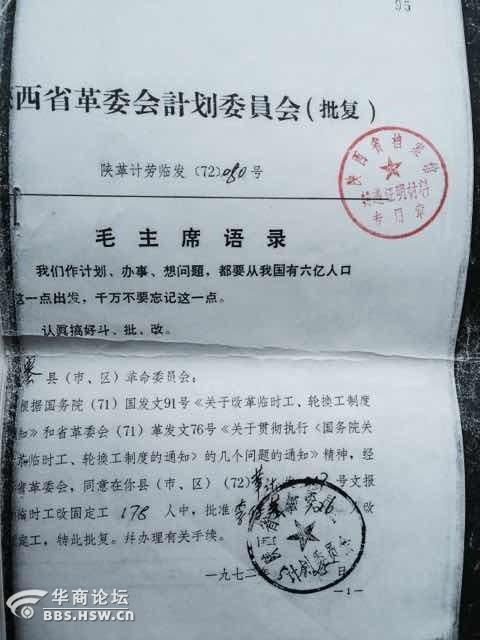 95
西省革委会計划委員会(批复)
陕革计劳临发(72)080号
陕西省档案馆
档案证明材料
专用章
毛主席语录
我们作计划、办事、想问题,都要从我国有六亿人口
这一点出发,千万不要忘记这一点。
认真搞好斗、批、改。
县(市、区)革命委员会:
根据国务院(71)国发文91号《关于改革临时工、轮换工制度
知》和省革委会(71)革发文76号《关于贯彻执行《国务院关
临时工、轮换工制度的通知》的几个问题的通知》精神,经
省革委会,同意在你县(市、区)(72)革计 号文报
临时工改固定工178人中,批准 改
定工,特此批复。幷办理有关手续。
一九七二 日
计划委员会
—1—
华商论坛
BBS.HSW.CN